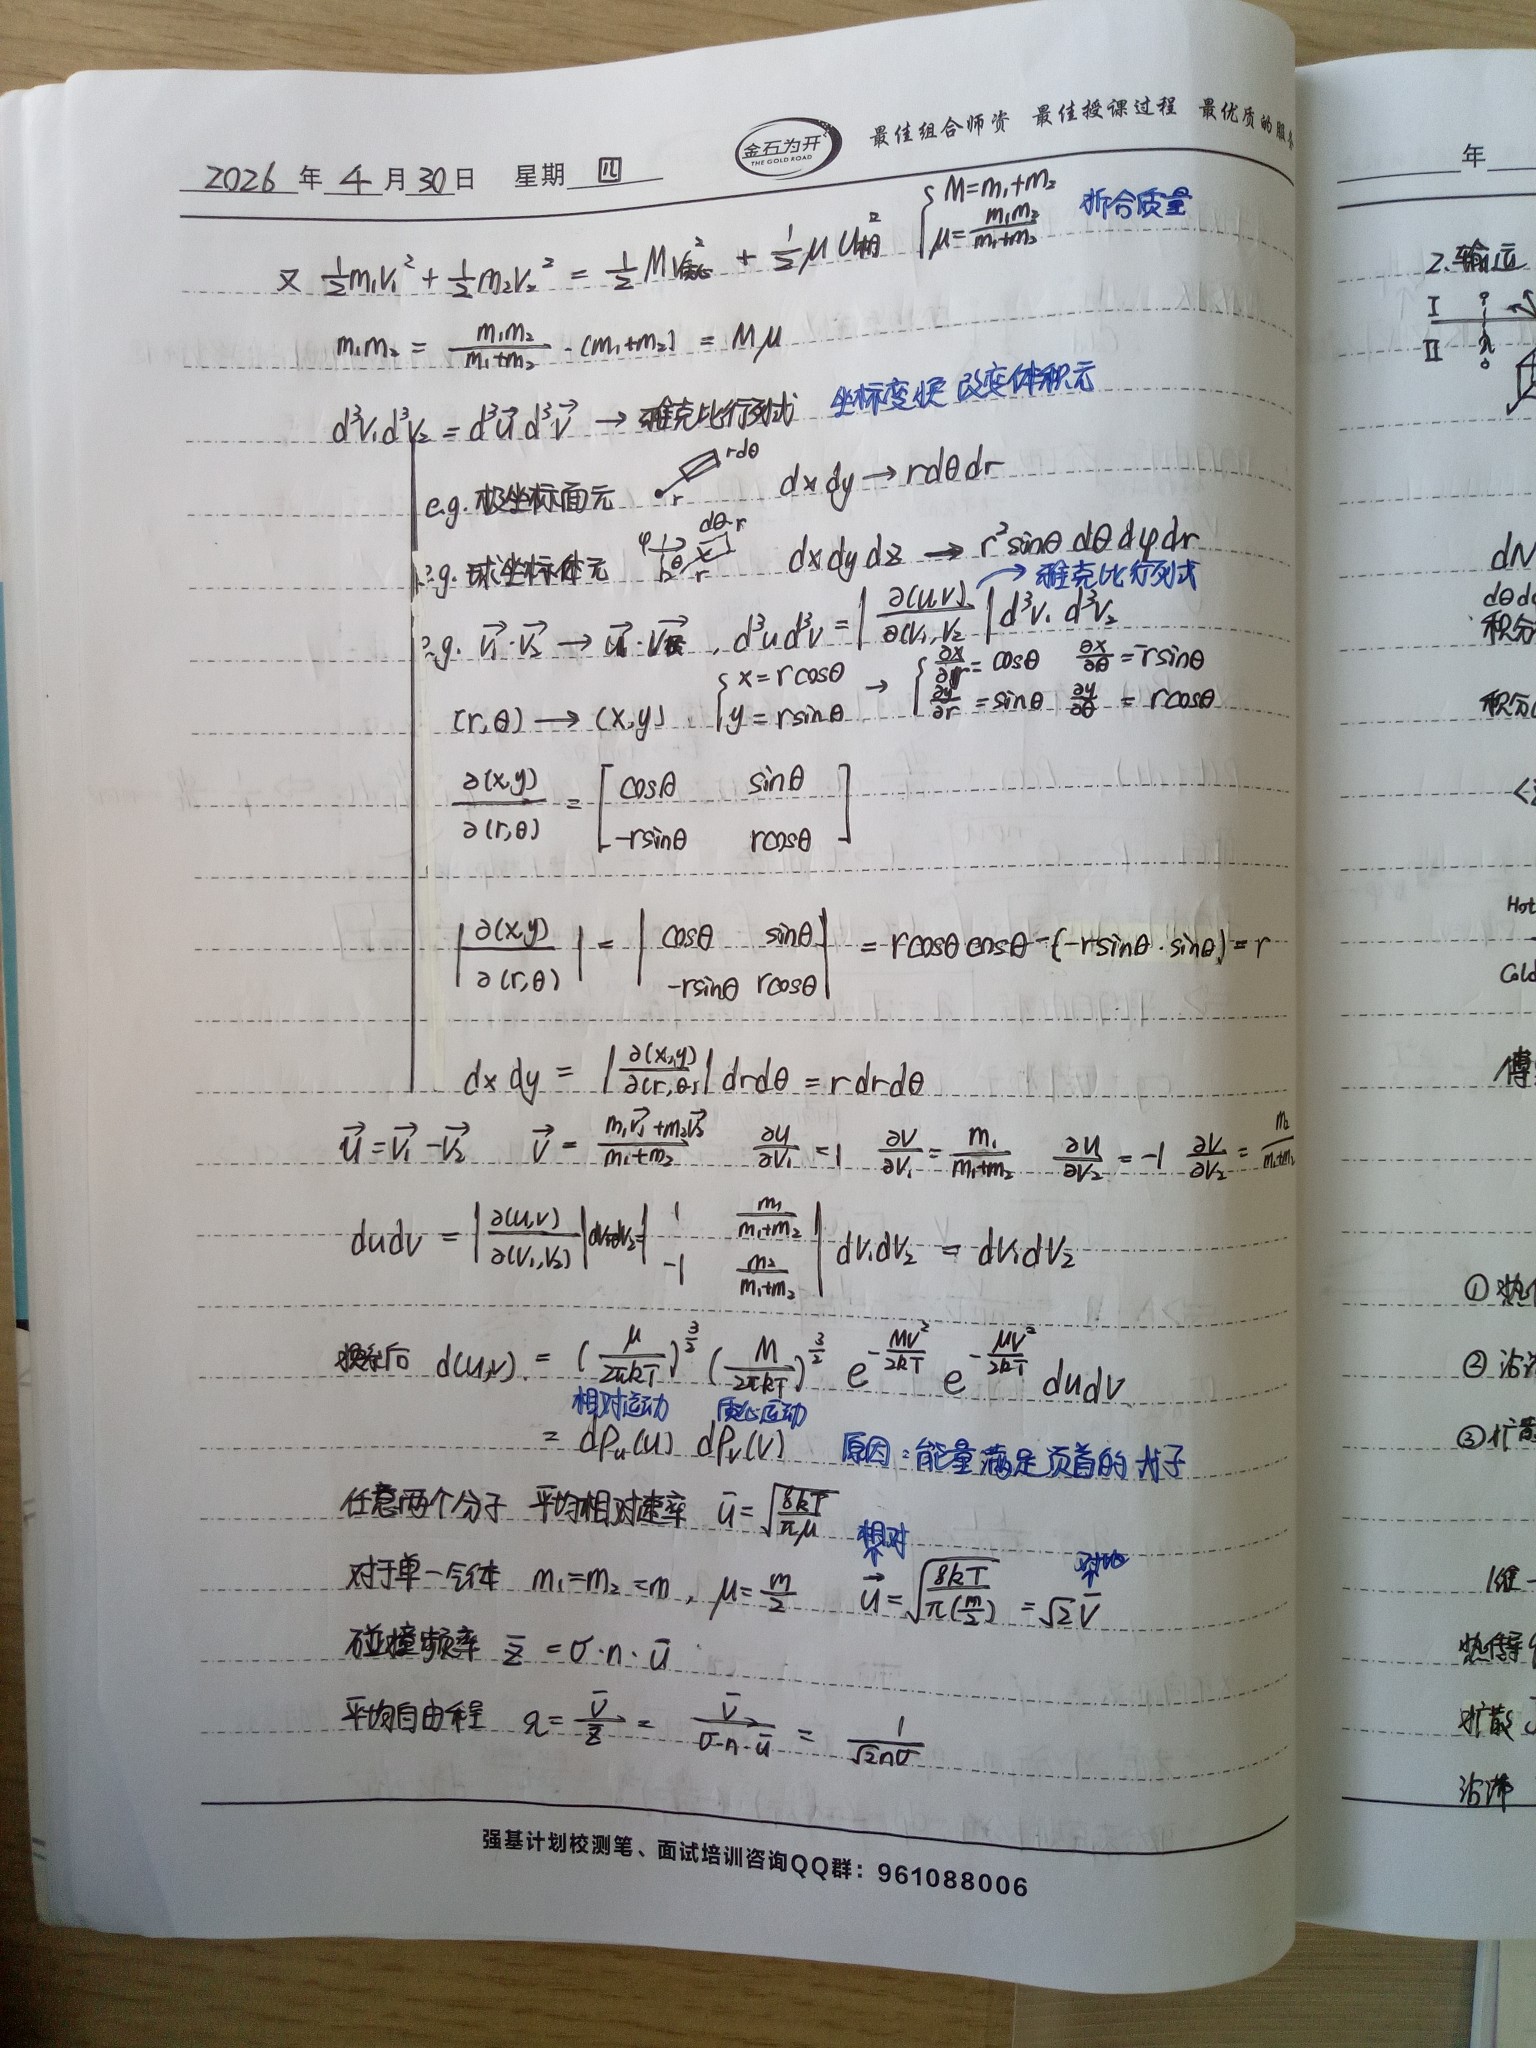 2026年 4月30日 星期 四
金石为开
THE GOLD ROAD
最佳组合师资 最佳授课过程 最优质的服
又 ½m₁v₁² + ½m₂v₂² = ½Mv质心² + ½μu相² { M=m₁+m₂ μ=m₁m₂/(m₁+m₂) 折合质量
m₁m₂ = m₁m₂/(m₁+m₂) · (m₁+m₂) = Mμ
d³v₁d³v₂ = d³u⃗ d³v⃗ → 雅克比行列式 坐标变换 改变体积元
e.g. 极坐标面元 r rdθ dxdy → rdθdr
e.g. 球坐标体元 φ θ r dθ·r dxdydz → r²sinθ dθ dφ dr
→ 雅克比行列式
e.g. v⃗₁·v⃗₂ → u⃗·v⃗ , d³u d³v = |∂(u,v)/∂(v₁,v₂| d³v₁ d³v₂
(r,θ) → (x,y) { x=rcosθ y=rsinθ → { ∂x/∂r=cosθ ∂x/∂θ=-rsinθ ∂y/∂r=sinθ ∂y/∂θ=rcosθ
∂(x,y)/∂(r,θ) = [ cosθ sinθ -rsinθ rcosθ ]
|∂(x,y)/∂(r,θ)| = | cosθ sinθ -rsinθ rcosθ | = rcosθcosθ-(-rsinθ·sinθ)=r
dxdy = |∂(x,y)/∂(r,θ)| drdθ = rdrdθ
u⃗=v⃗₁-v⃗₂ v⃗ = (m₁v⃗₁+m₂v⃗₂)/(m₁+m₂) ∂u/∂v₁=1 ∂v/∂v₁=m₁/(m₁+m₂) ∂u/∂v₂=-1 ∂v/∂v₂=m₂/(m₁+m₂)
dudv = |∂(u,v)/∂(v₁,v₂)|dv₁dv₂=| 1 m₁/(m₁+m₂) -1 m₂/(m₁+m₂) | dv₁dv₂ = dv₁dv₂
换系后 d(u,v) = (μ/2πkT)^(3/2) (M/2πkT)^(3/2) e^(-MV²/2kT) e^(-μV²/2kT) dudv
相对运动 质心运动
= dPᵤ(u) dPᵥ(v) 原因:能量满足页首的式子
任意两个分子 平均相对速率 ū=√(8kT/πμ)
相对 对地
对于单一气体 m₁=m₂=m , μ=m/2 u⃗=√(8kT/π(m/2)) =√2v̄
碰撞频率 z̄ =σ·n·ū
平均自由程 λ= v̄/z̄ = v̄/(σ·n·ū) = 1/(√2nσ)
强基计划校测笔、面试培训咨询QQ群：961088006
年
2.输运
I
II
dN
积分
积分
Hot
Cold
傅
①热
②沾
③扩散
1维
热传导
扩散
沾滞